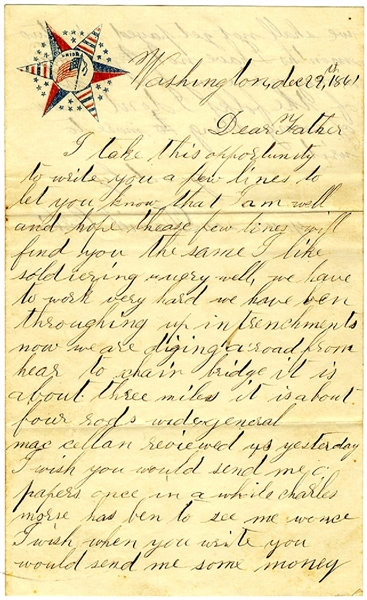 UNION
Washington, dec 29th, 1861
Dear Father
I take this opportunity
to write you a few lines to
let you know that I am well
and hope thease few lines will
find you the same I like
soldiering ungry well, we have
to work very hard we have ben
throughing up intrenchments
now we are diging a road from
hear to chain bridge it is
about three miles it is about
four rods wide general
mac cellan reviewed us yesterday
I wish you would send me a
papers once in a while charles
morse has ben to see me wonce
I wish when you write you
would send me some money